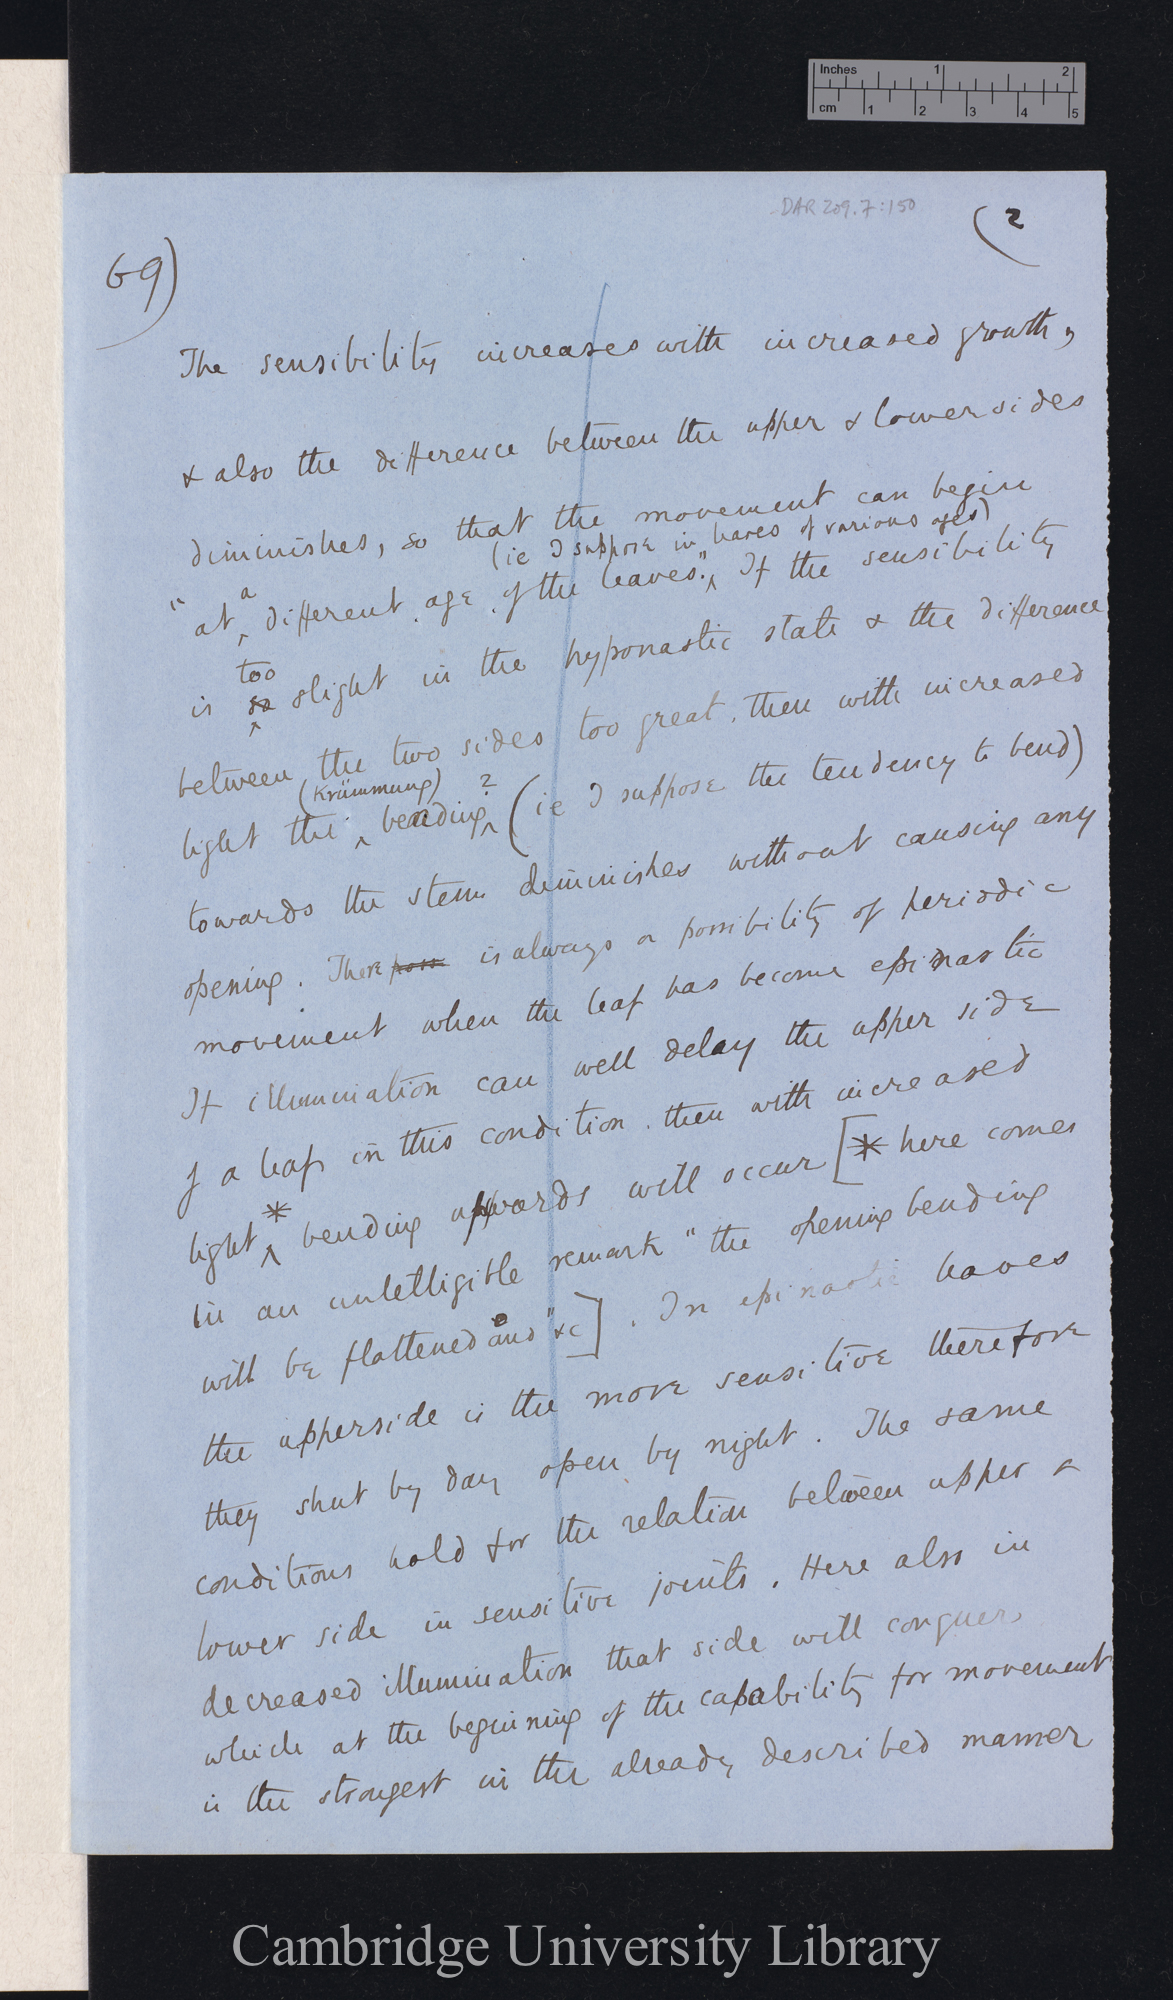 Inches 1 2
cm 1 2 3 4 5
DAR 209.7:150
(2
69)
The sensibility increases with increased growth,
& also the difference between the upper & lower sides
diminishes, so that the movement can begin
(ie I suppose in leaves of various ages)
"at a different age of the leaves." If the sensibility
is so too slight in the hyponastic state & the difference
between the two sides too great, then with increased
light the (Krümmung) bending ? (ie I suppose the tendency to bend)
towards the stem diminishes without causing any
opening. There poss is always a possibility of periodic
movement when the leaf has become epinastic
If illumination can well delay the upper side
of a leaf in this condition, then with increased
light * bending upwards will occur [* here comes
in an unintelligible remark "the opening bending
will be flattened and" &c]. In epinastic leaves
the upperside is the more sensitive therefore
they shut by day open by night. The same
conditions hold for the relation between upper &
lower side in sensitive joints. Here also in
decreased illumination that side will conquer
which at the beginning of the capability for movement
is the strongest in the already described manner
Cambridge University Library